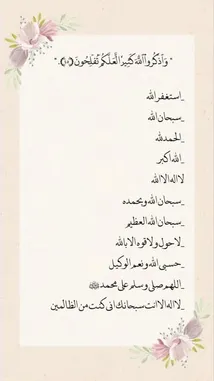 " وَاذْكُرُوا اللَّهَ كَثِيرًا لَّعَلَّكُمْ تُفْلِحُونَ (١٠)."
_استغفر الله
_سبحان الله
_الحمدلله
_الله اكبر
لا اله الا الله
_سبحان الله وبحمده
_سبحان الله العظيم
_لاحول ولا قوه الا بالله
_حسبي الله ونعم الوكيل
_اللهم صلي وسلم على محمد ﷺ
_لا اله الا انت سبحانك اني كنت من الظالمين